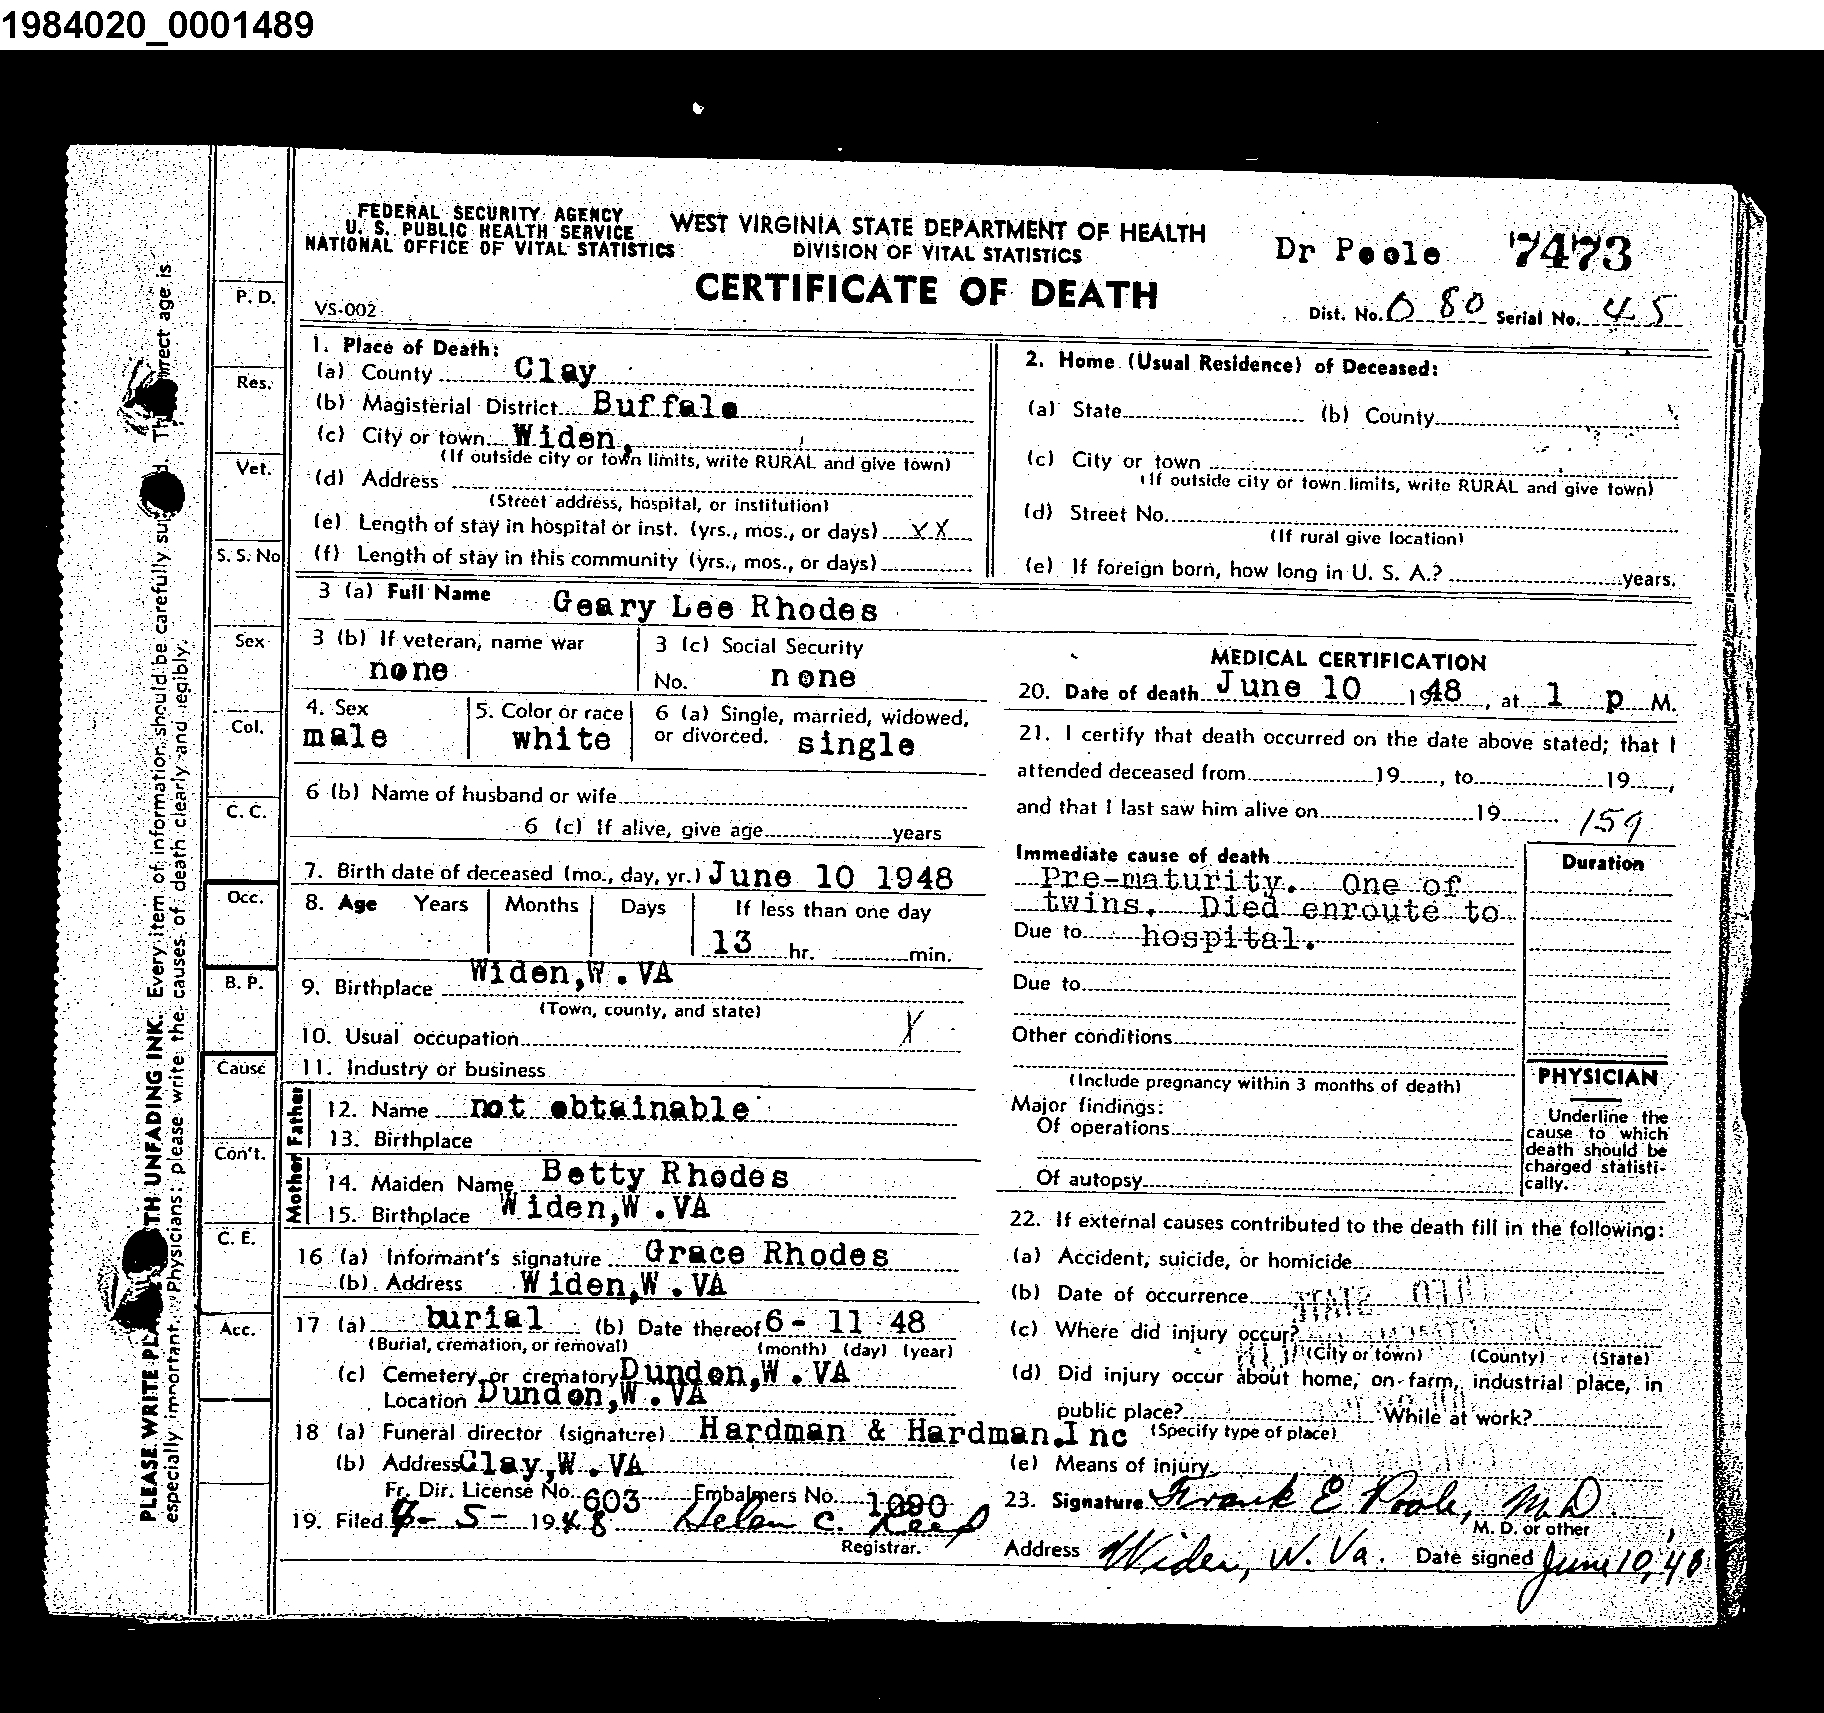 1984020_0001489
FEDERAL SECURITY AGENCY
U. S. PUBLIC HEALTH SERVICE
NATIONAL OFFICE OF VITAL STATISTICS
WEST VIRGINIA STATE DEPARTMENT OF HEALTH
DIVISION OF VITAL STATISTICS
CERTIFICATE OF DEATH
VS-002
Dr Poole 7473
Dist. No. 080 Serial No. 45
1. Place of Death:
(a) County Clay
(b) Magisterial District Buffalo
(c) City or town Widen,
(If outside city or town limits, write RURAL and give town)
(d) Address
(Street address, hospital, or institution)
(e) Length of stay in hospital or inst. (yrs., mos., or days) XX
(f) Length of stay in this community (yrs., mos., or days)
2. Home (Usual Residence) of Deceased:
(a) State (b) County
(c) City or town
(If outside city or town limits, write RURAL and give town)
(d) Street No.
(If rural give location)
(e) If foreign born, how long in U. S. A.? years.
3 (a) Full Name Geary Lee Rhodes
3 (b) If veteran, name war
none
3 (c) Social Security
No. none
4. Sex
male
5. Color or race
white
6 (a) Single, married, widowed,
or divorced. single
6 (b) Name of husband or wife
6 (c) If alive, give age years
7. Birth date of deceased (mo., day, yr.) June 10 1948
8. Age Years Months Days If less than one day
13 hr. min.
9. Birthplace Widen,W.VA
(Town, county, and state)
10. Usual occupation X
11. Industry or business
Father
12. Name not obtainable
13. Birthplace
Mother
14. Maiden Name Betty Rhodes
15. Birthplace Widen,W.VA
16 (a) Informant's signature Grace Rhodes
(b) Address Widen,W.VA
17 (a) burial (b) Date thereof 6- 11 48
(Burial, cremation, or removal) (month) (day) (year)
(c) Cemetery or crematory Dundon,W.VA
Location Dundon,W.VA
18 (a) Funeral director (signature) Hardman & Hardman.Inc
(b) Address Clay,W.VA
Fr. Dir. License No. 603 Embalmers No. 1090
19. Filed - 5 - 1948 Helen C.
Registrar.
MEDICAL CERTIFICATION
20. Date of death June 10 1948, at 1 p M.
21. I certify that death occurred on the date above stated; that I
attended deceased from 19 , to 19 ,
and that I last saw him alive on 19 159
Immediate cause of death
Duration
Pre-maturity. One of
twins. Died enroute to
Due to hospital.
Due to
Other conditions
(Include pregnancy within 3 months of death)
Major findings:
Of operations
Of autopsy
PHYSICIAN
Underline the
cause to which
death should be
charged statisti-
cally.
22. If external causes contributed to the death fill in the following:
(a) Accident, suicide, or homicide
(b) Date of occurrence
(c) Where did injury occur?
(City or town) (County) (State)
(d) Did injury occur about home, on farm, industrial place, in
public place? While at work?
(Specify type of place)
(e) Means of injury
23. Signature Frank E Poole, M.D.
M. D. or other
Address Widen, W. Va. Date signed June 10, '48
P. D.
Res.
Vet.
S. S. No
Sex
Col.
C. C.
Occ.
B. P.
Cause
Con't.
C. E.
Acc.
PLEASE WRITE UNFADING INK. Every item of information should be carefully
especially important. Physicians: please write the causes of death clearly and legibly. age is